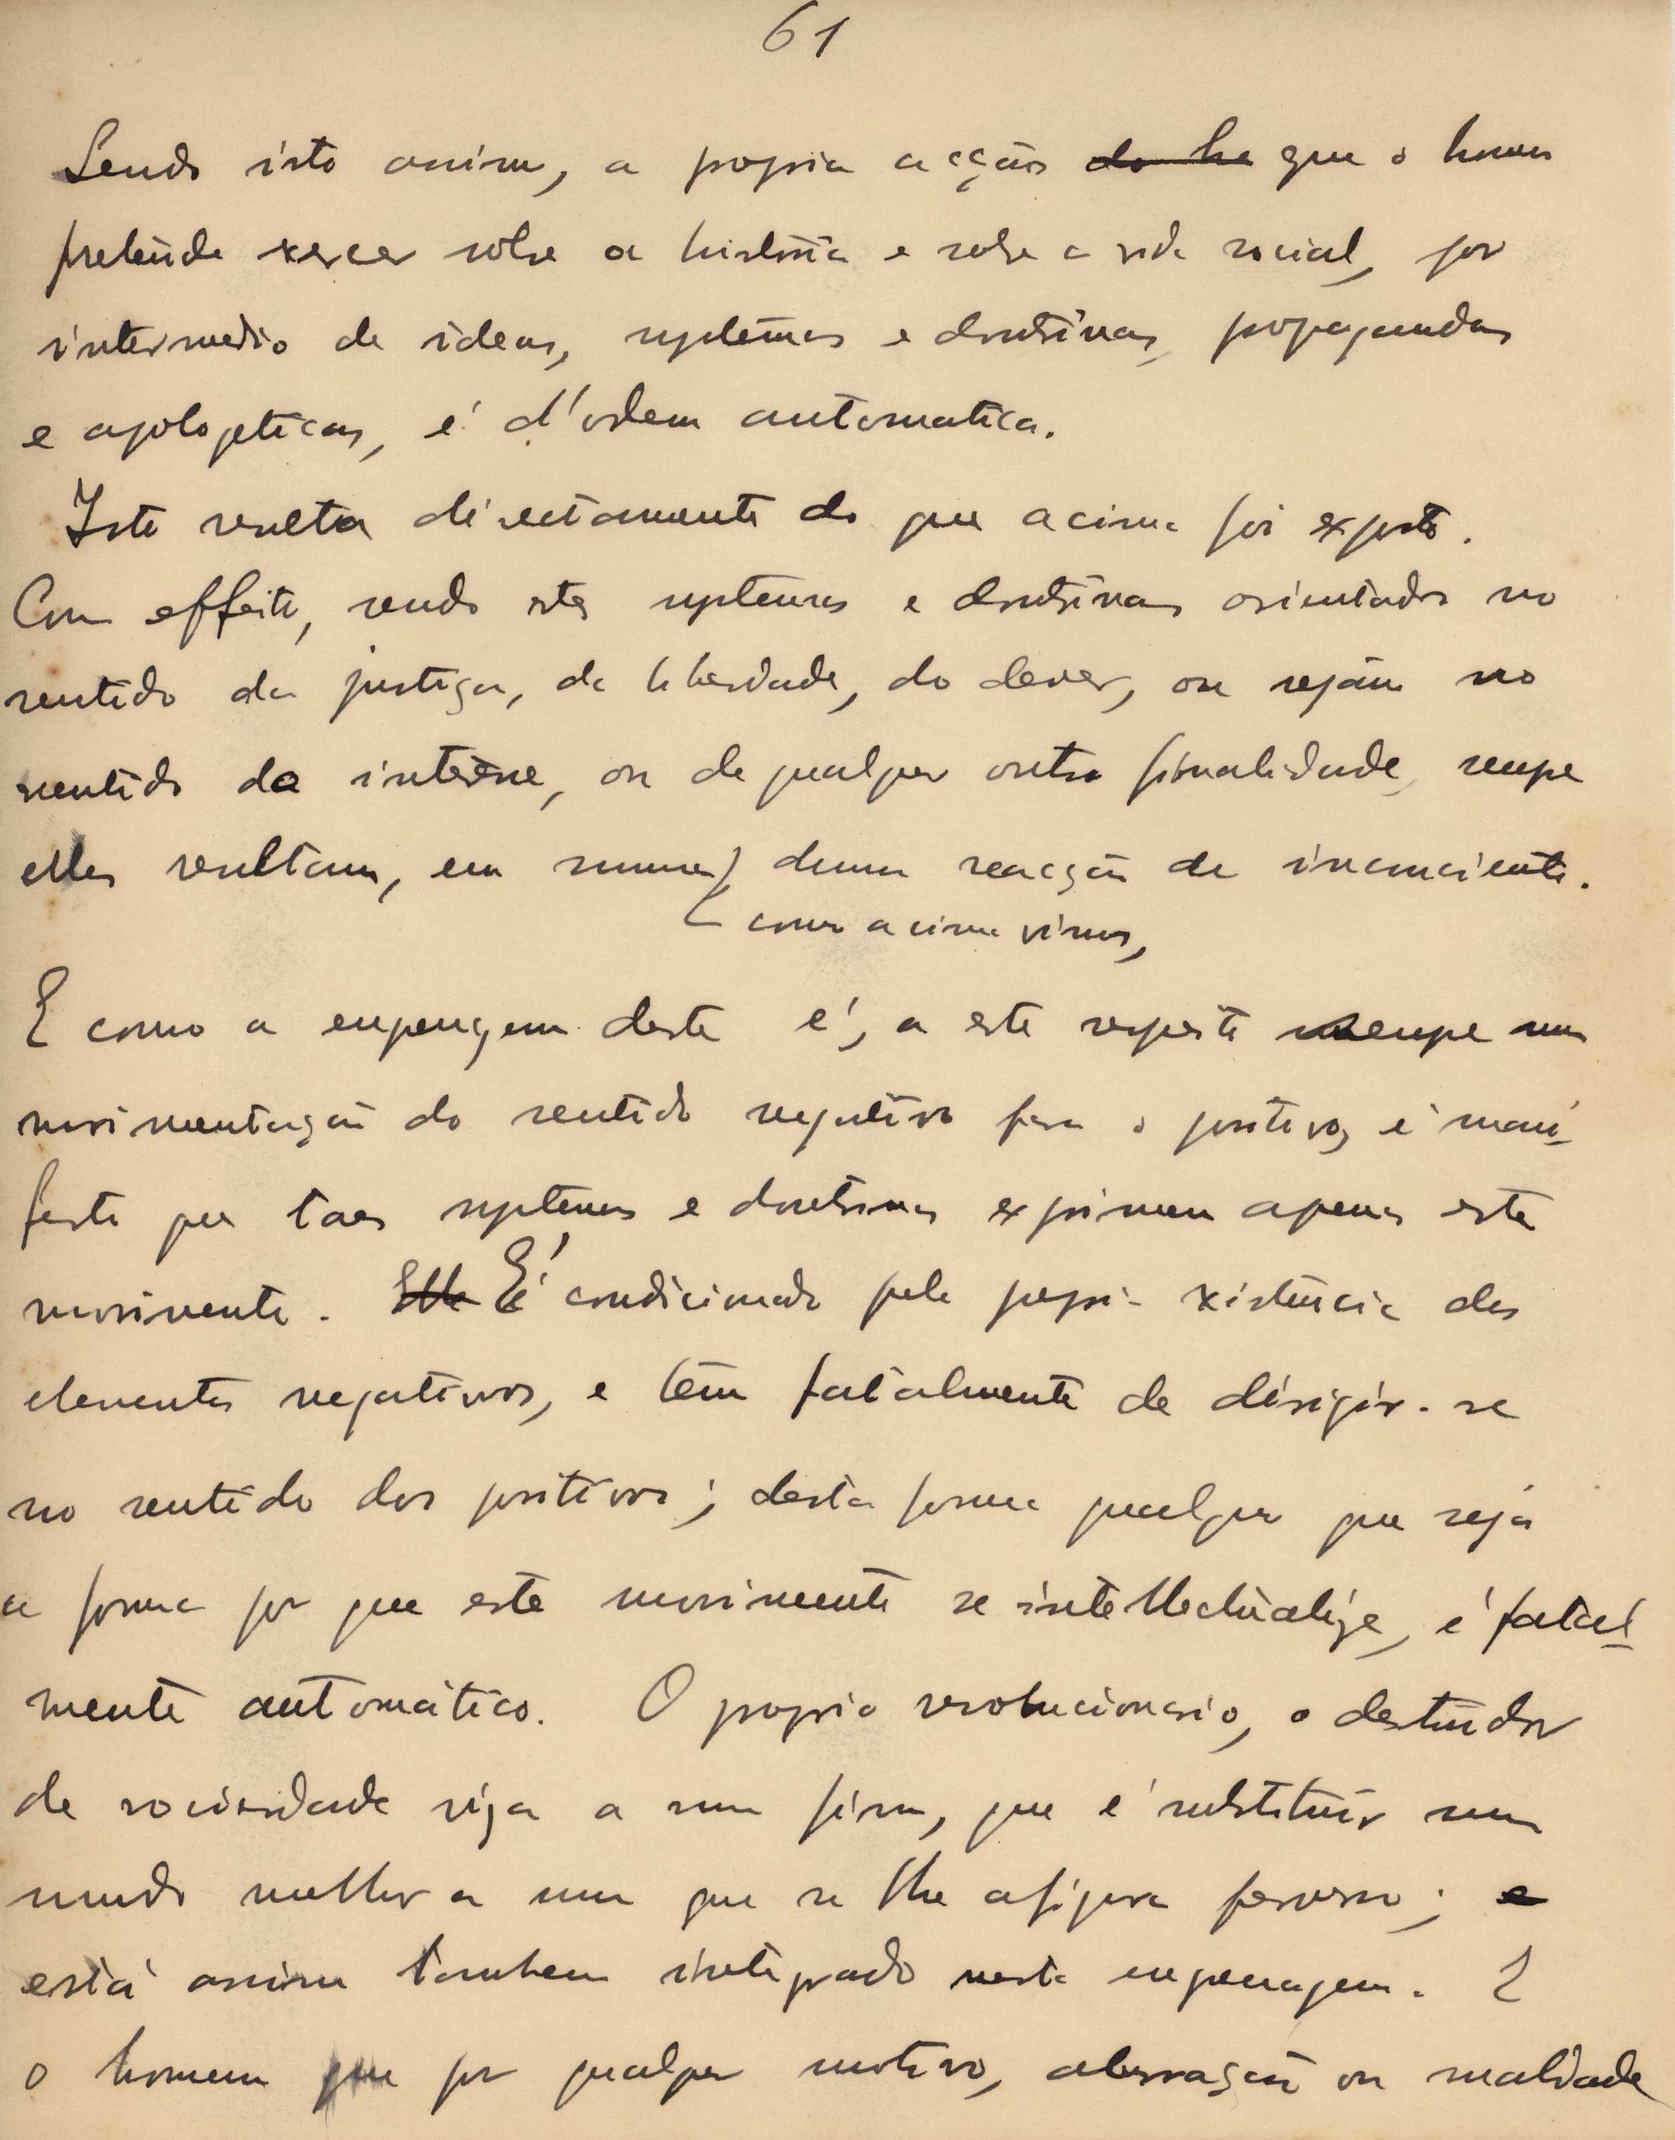 61
Sendo isto assim, a propria acção do ho que o homem
pretende exercer sobre a historia e sobre a vida social, por
intermedio de ideas, systemas e doutrinas, propagandas
e apologeticas, é d'ordem automatica.
Isto resulta directamente do que acima foi exposto.
Com effeito, sendo estes systemas e doutrinas orientados no
sentido da justiça, da liberdade, do dever, ou sejam no
sentido do interesse, ou de qualquer outra finalidade, sempre
elles resultam, em summa, duma reacção do inconsciente.
como acima vimos,
E como a engrenagem deste é, a este respeito sempre uma
movimentação do sentido negativo para o positivo, é mani-
festo que taes systemas e doutrinas exprimem apenas este
movimento. Elle É condicionado pela propria existencia dos
elementos negativos, e tem fatalmente de dirigir-se
no sentido dos positivos; desta forma qualquer que seja
a forma por que este movimento se intellectualize, é fatal-
mente automático. O proprio revolucionario, o destruidor
de sociedade visa a um fim, que é substituir um
mundo melhor a um que se lhe afigura perverso; e
está assim tambem integrado nesta engrenagem. E
o homem que por qualquer motivo, aberração ou maldade